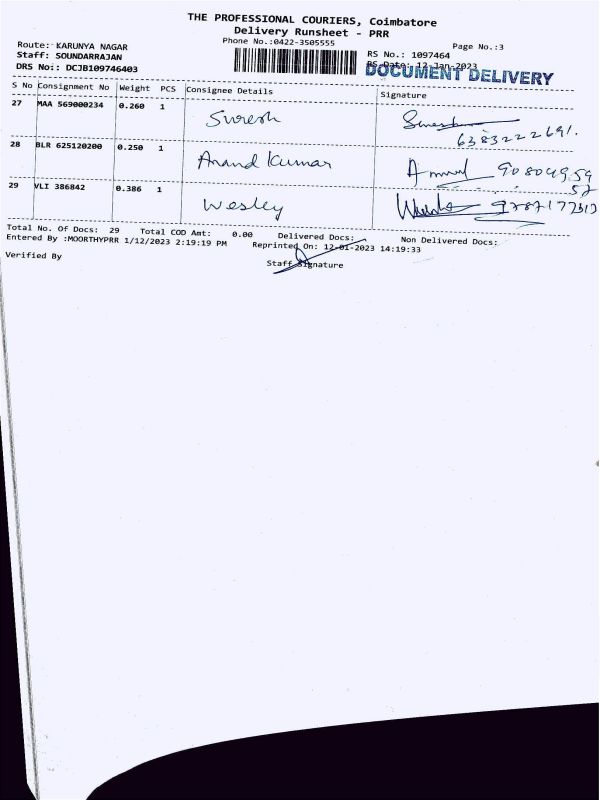 THE PROFESSIONAL COURIERS, Coimbatore
Delivery Runsheet - PRR
Phone No.:0422-3505555
Page No.:3
Route: KARUNYA NAGAR
Staff: SOUNDARRAJAN
DRS No:: DCJB109746403
RS No.: 1097464
RS Date: 12-Jan-2023
DOCUMENT DELIVERY
S No Consignment No Weight PCS Consignee Details Signature
27 MAA 569000234 0.260 1 Suresh
6383222691.
28 BLR 625120200 0.250 1 Anand Kumar 9080495952
29 VLI 386842 0.386 1 Wesley
Total No. Of Docs: 29 Total COD Amt: 0.00 Delivered Docs: Non Delivered Docs:
Entered By :MOORTHYPRR 1/12/2023 2:19:19 PM Reprinted On: 12-01-2023 14:19:33
Verified By Staff Signature